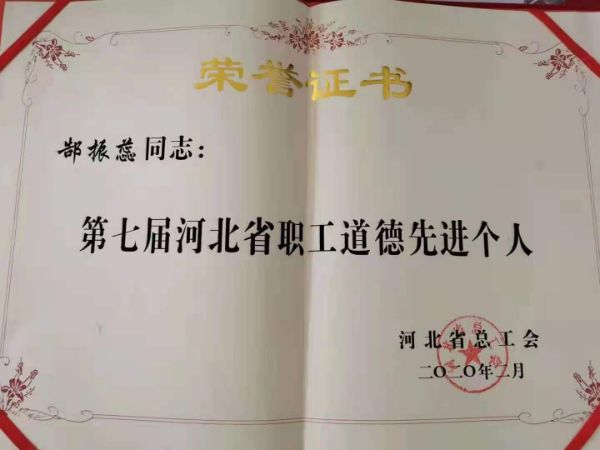 荣誉证书
郜振蕊同志：
第七届河北省职工道德先进个人
河北省总工会
二〇二〇年二月